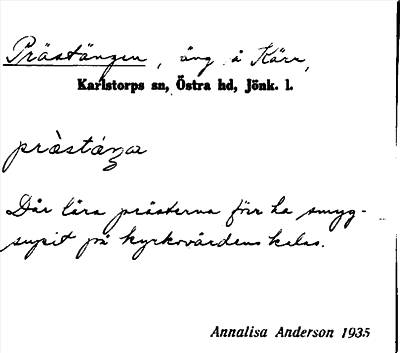 Prästängen, äng å Kärr,
Karlstorps sn, Östra hd, Jönk. l.
prȧ̀stáŋa
Där lära prästerna förr ha smyg-
supit på kyrkovärdens kalas.
Annalisa Anderson 1935